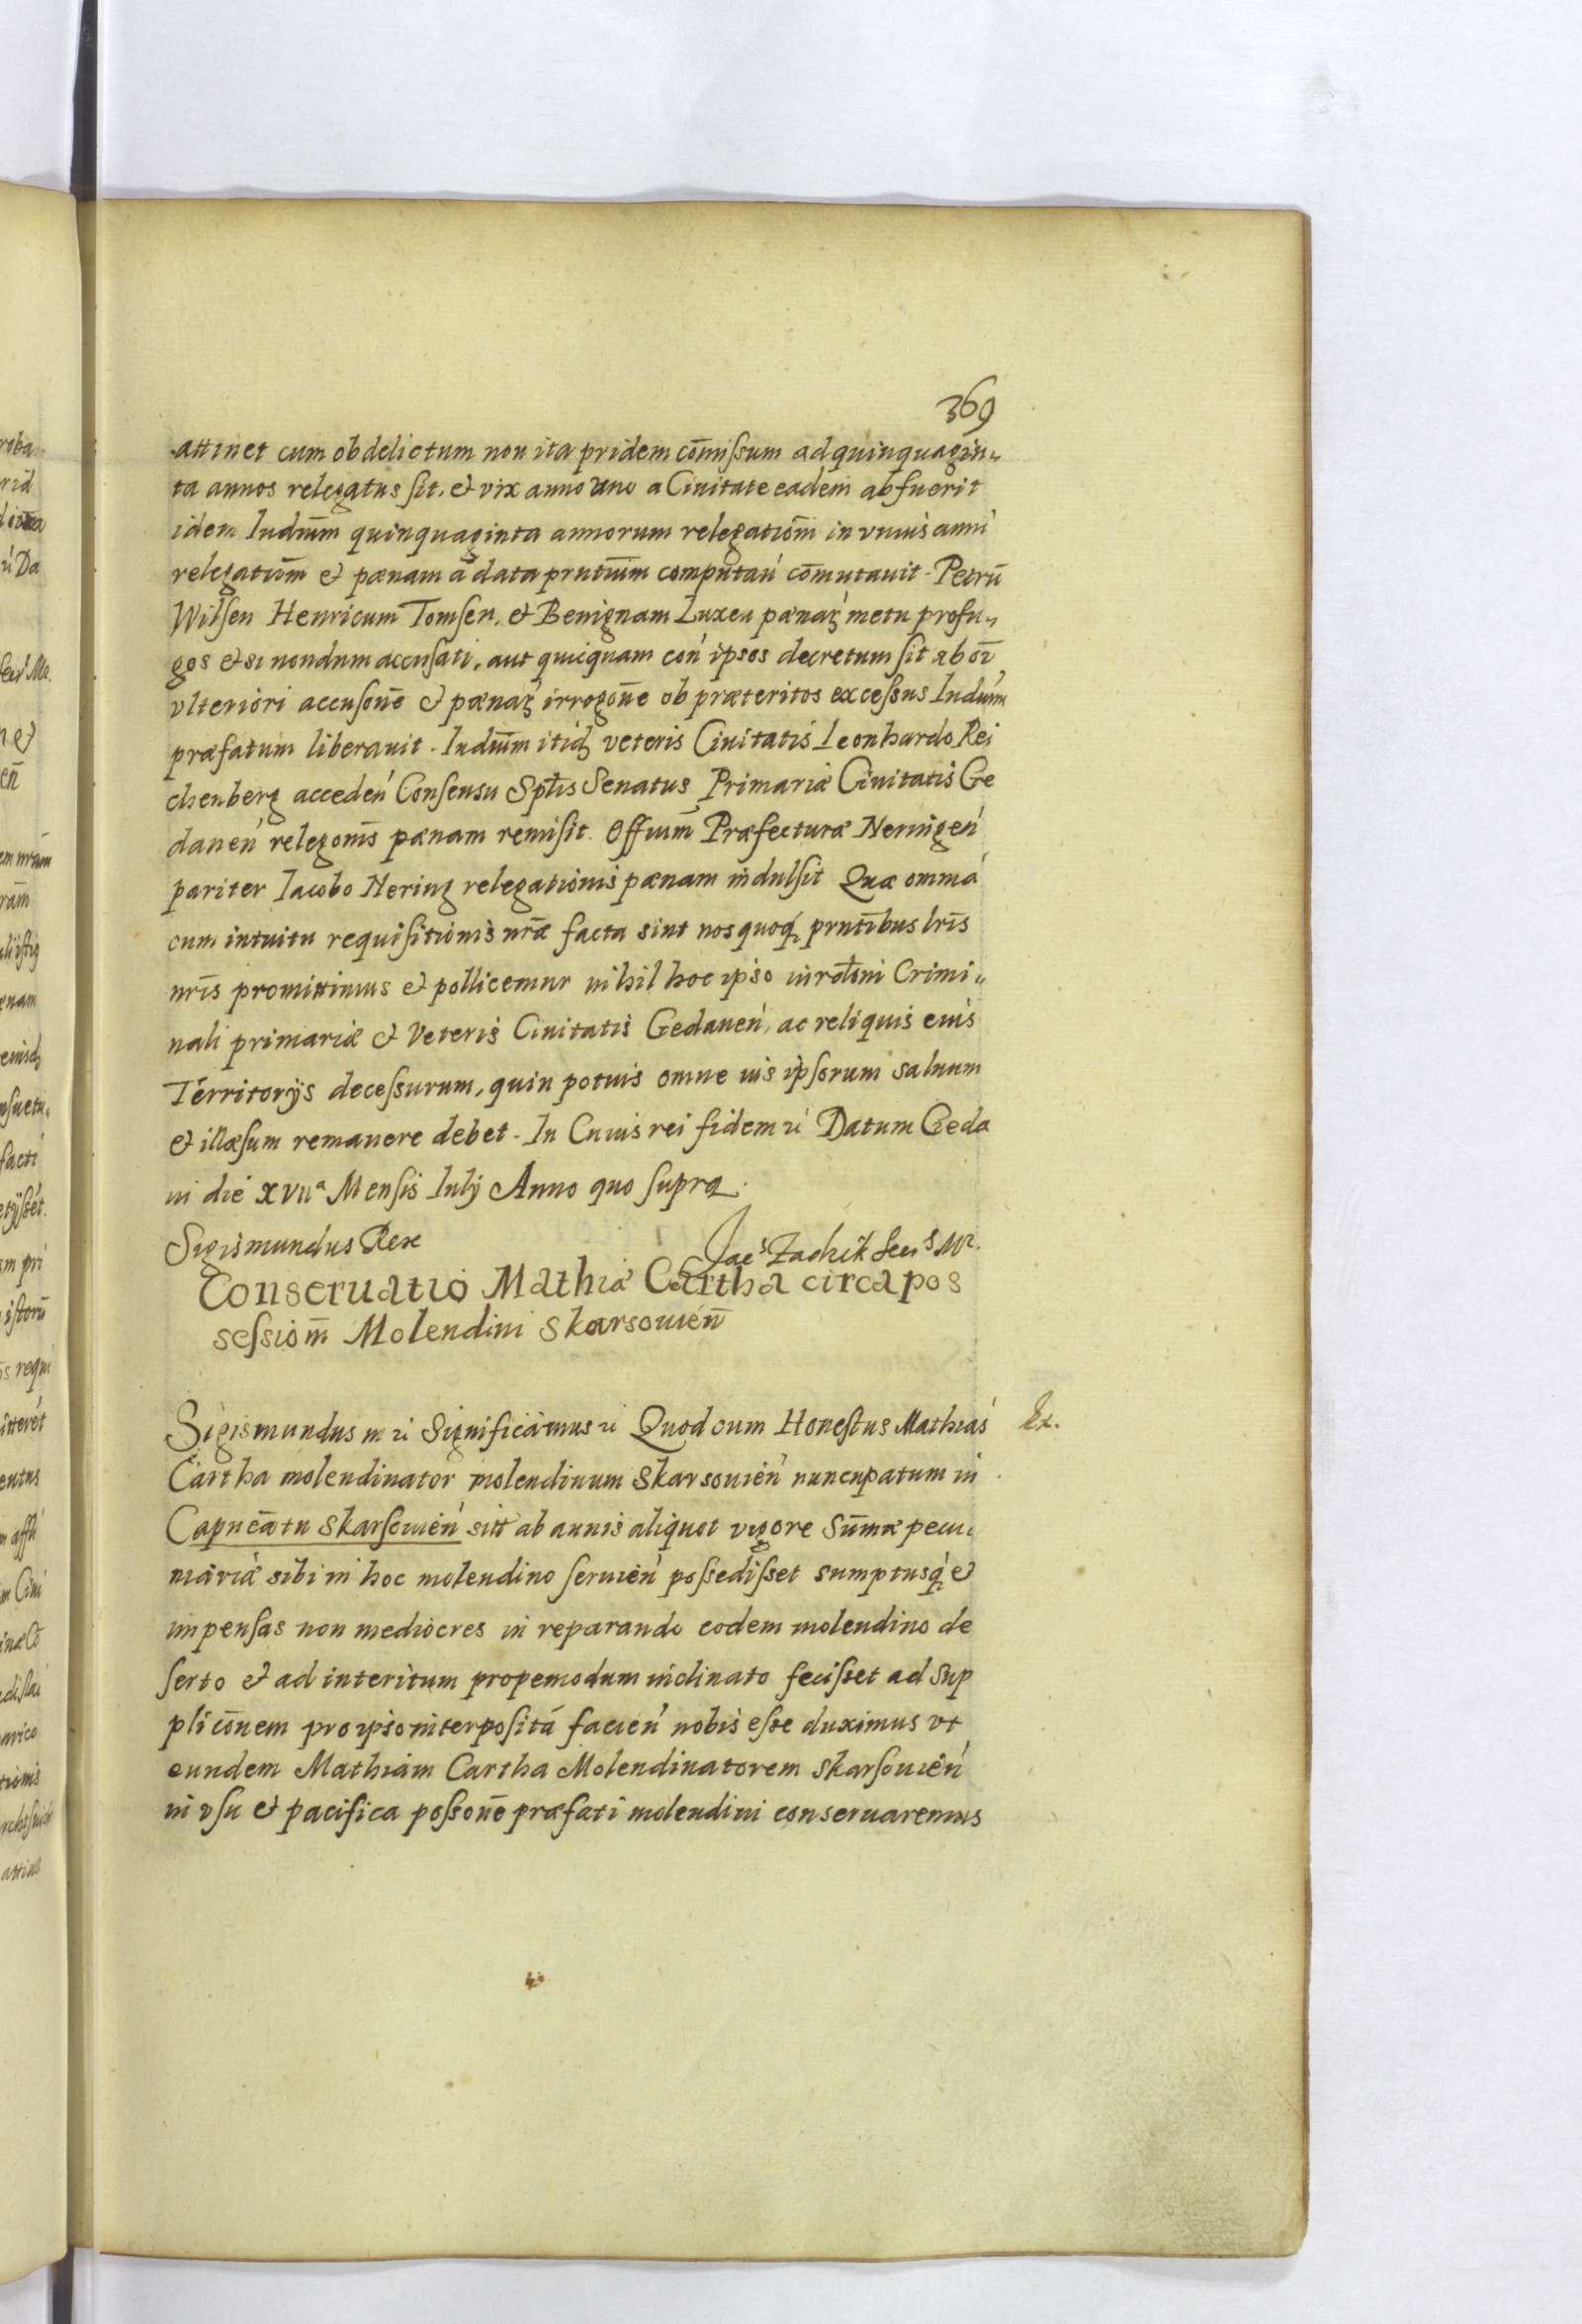 369
attinet cum ob delictum non ita pridem cōmiſsum ad quinquagin„
ta annos relegatus ſit. et vix anno uno a Ciuitate eadem abfuerit
idem Iudiūm quinquaginta annorum relegatiōm in vnius anni
relegatiōm et pænam a data prntiūm computań cōmutauit. Petrū
Wilſen Henricum Tomſen, et Benignam Luxen pænaꝝ metu profu„
gos etsi nondum accuſati, aut quicquam coń ipsos decretum ſit ab oī
vlteriori accuſoñe et pænaꝝ irrogoñe ob præteritos exceſsus Iudiúm
præfatum liberauit. Iudiūm itidꝫ veteris Ciuitatis Leonhardo Rei
chenberg accedeń Conſensu Spl̄is Senatus Primariæ Ciuitatis Ge
daneń relegoñis pænam remiſit. Offiūm Præfecturæ Neringeń
pariter Iacobo Nering relegationis pænam indulſit Quæ omnia
cum intuitu requiſitionis nr̄æ facta sint nos quoqꝫ prntībus lr̄is
nr̄is promittimus et pollicemur nihil hoc ipso iurōtoni Crimi„
nali primariæ et Veteris Ciuitatis Gedaneń, ac reliquis euis
Territorÿs deceſsurum, quin potuis omne ius ipſorum saluum
et illæſum remanere debet. In Cuius rei fidem ꝛć Datum Geda
ni die xvııª Menſis Iulÿ Anno quo ſupra.
Sigismundus Rex
Jacˢ Zadzik Secˢ Mr.
Conseruatio Mathiæ Cartha circa pos
seſsiōm Molendini Skarsouień
Sigismundus III ꝛć Significamus ꝛć Quod cum Honeſtus Mathias
Ex.
Cartha molendinator molendinum Skarsouień nuncupatum in
Capneātu Skarſouień sitt̄ ab annis aliquot vigore Sūmæ pecu„
niariæ sibi in hoc molendino ſeruień poſsediſset sumptusqꝫ et
impenſas non mediocres in reparando eodem molendino de
ſerto et ad interitum propemodum inclinato feciſset ad Sup
plicōnem pro ipso interpoſitā facień nobis eſse duximus vt
eundem Mathiam Cartha Molendinatorem Skarſouień
in vſu et pacifica poſsoñe præfati molendini conseruaremus